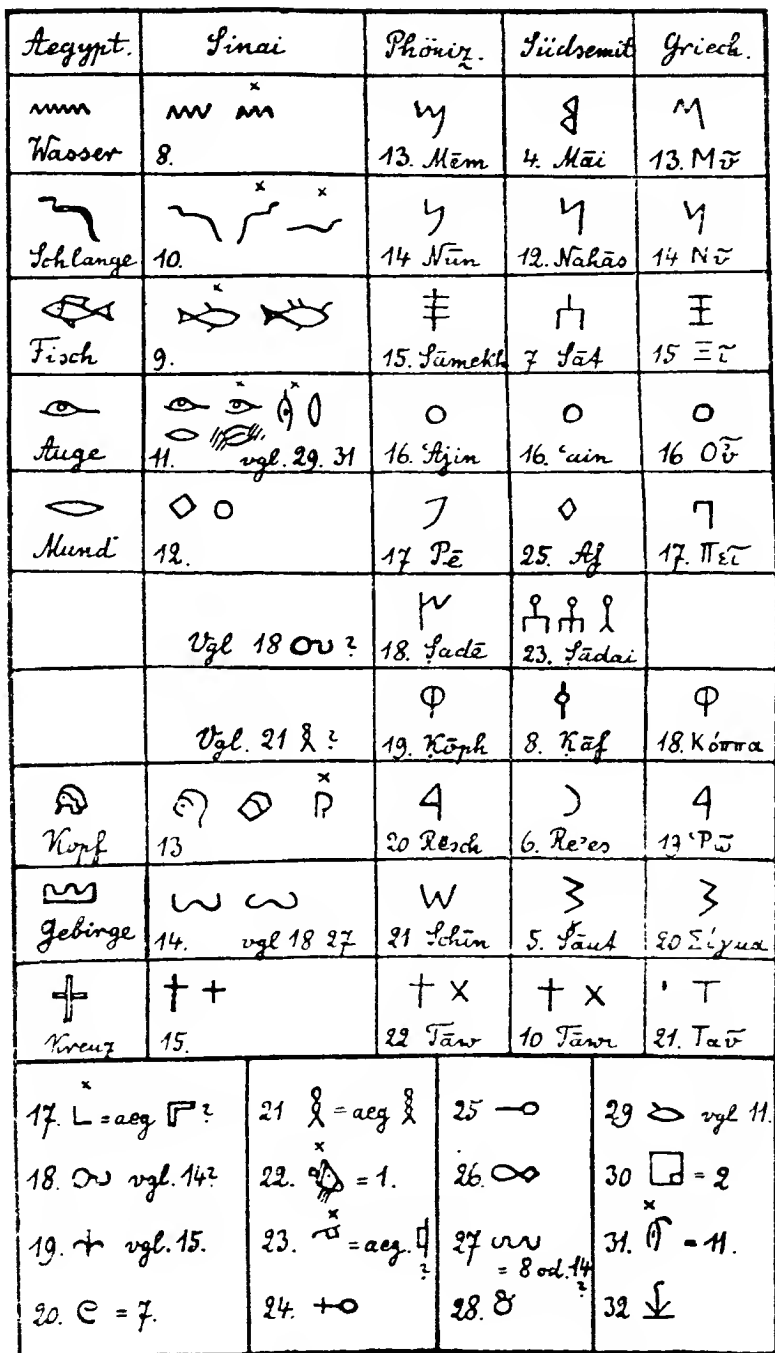 Aegypt. Sinai Phöniz. Südsemit Griech.
Wasser 8. 13. Mēm 4. Māi 13. Μῦ
Schlange 10. 14 Nūn 12. Nahās 14 Νῦ
Fisch 9. 15. Sāmekh 7 Sāt 15 Ξῖ
Auge 11. vgl. 29. 31 16. ʿAjin 16. ʿain 16 Οὖ
Mund 12. 17 Pē 25. Af 17. Πεῖ
Vgl 18 ? 18. Ṣadē 23. Ṣādai
Vgl. 21 ? 19. Ḳōph 8. Ḳāf 18. Κόππα
Kopf 13 20 Rēsch 6. Reʾes 19 Ῥῶ
Gebirge 14. vgl 18 27 21 Schīn 5. Šaut 20 Σίγμα
Kreuz 15. 22 Tāw 10 Tāwi 21. Ταῦ
17. = aeg ?
18. vgl. 14?
19. vgl. 15.
20. = 7.
21 = aeg
22. = 1.
23. = aeg. ?
24.
25
26.
27 = 8 od. 14 ?
28.
29 vgl 11.
30 = 2
31. = 11.
32